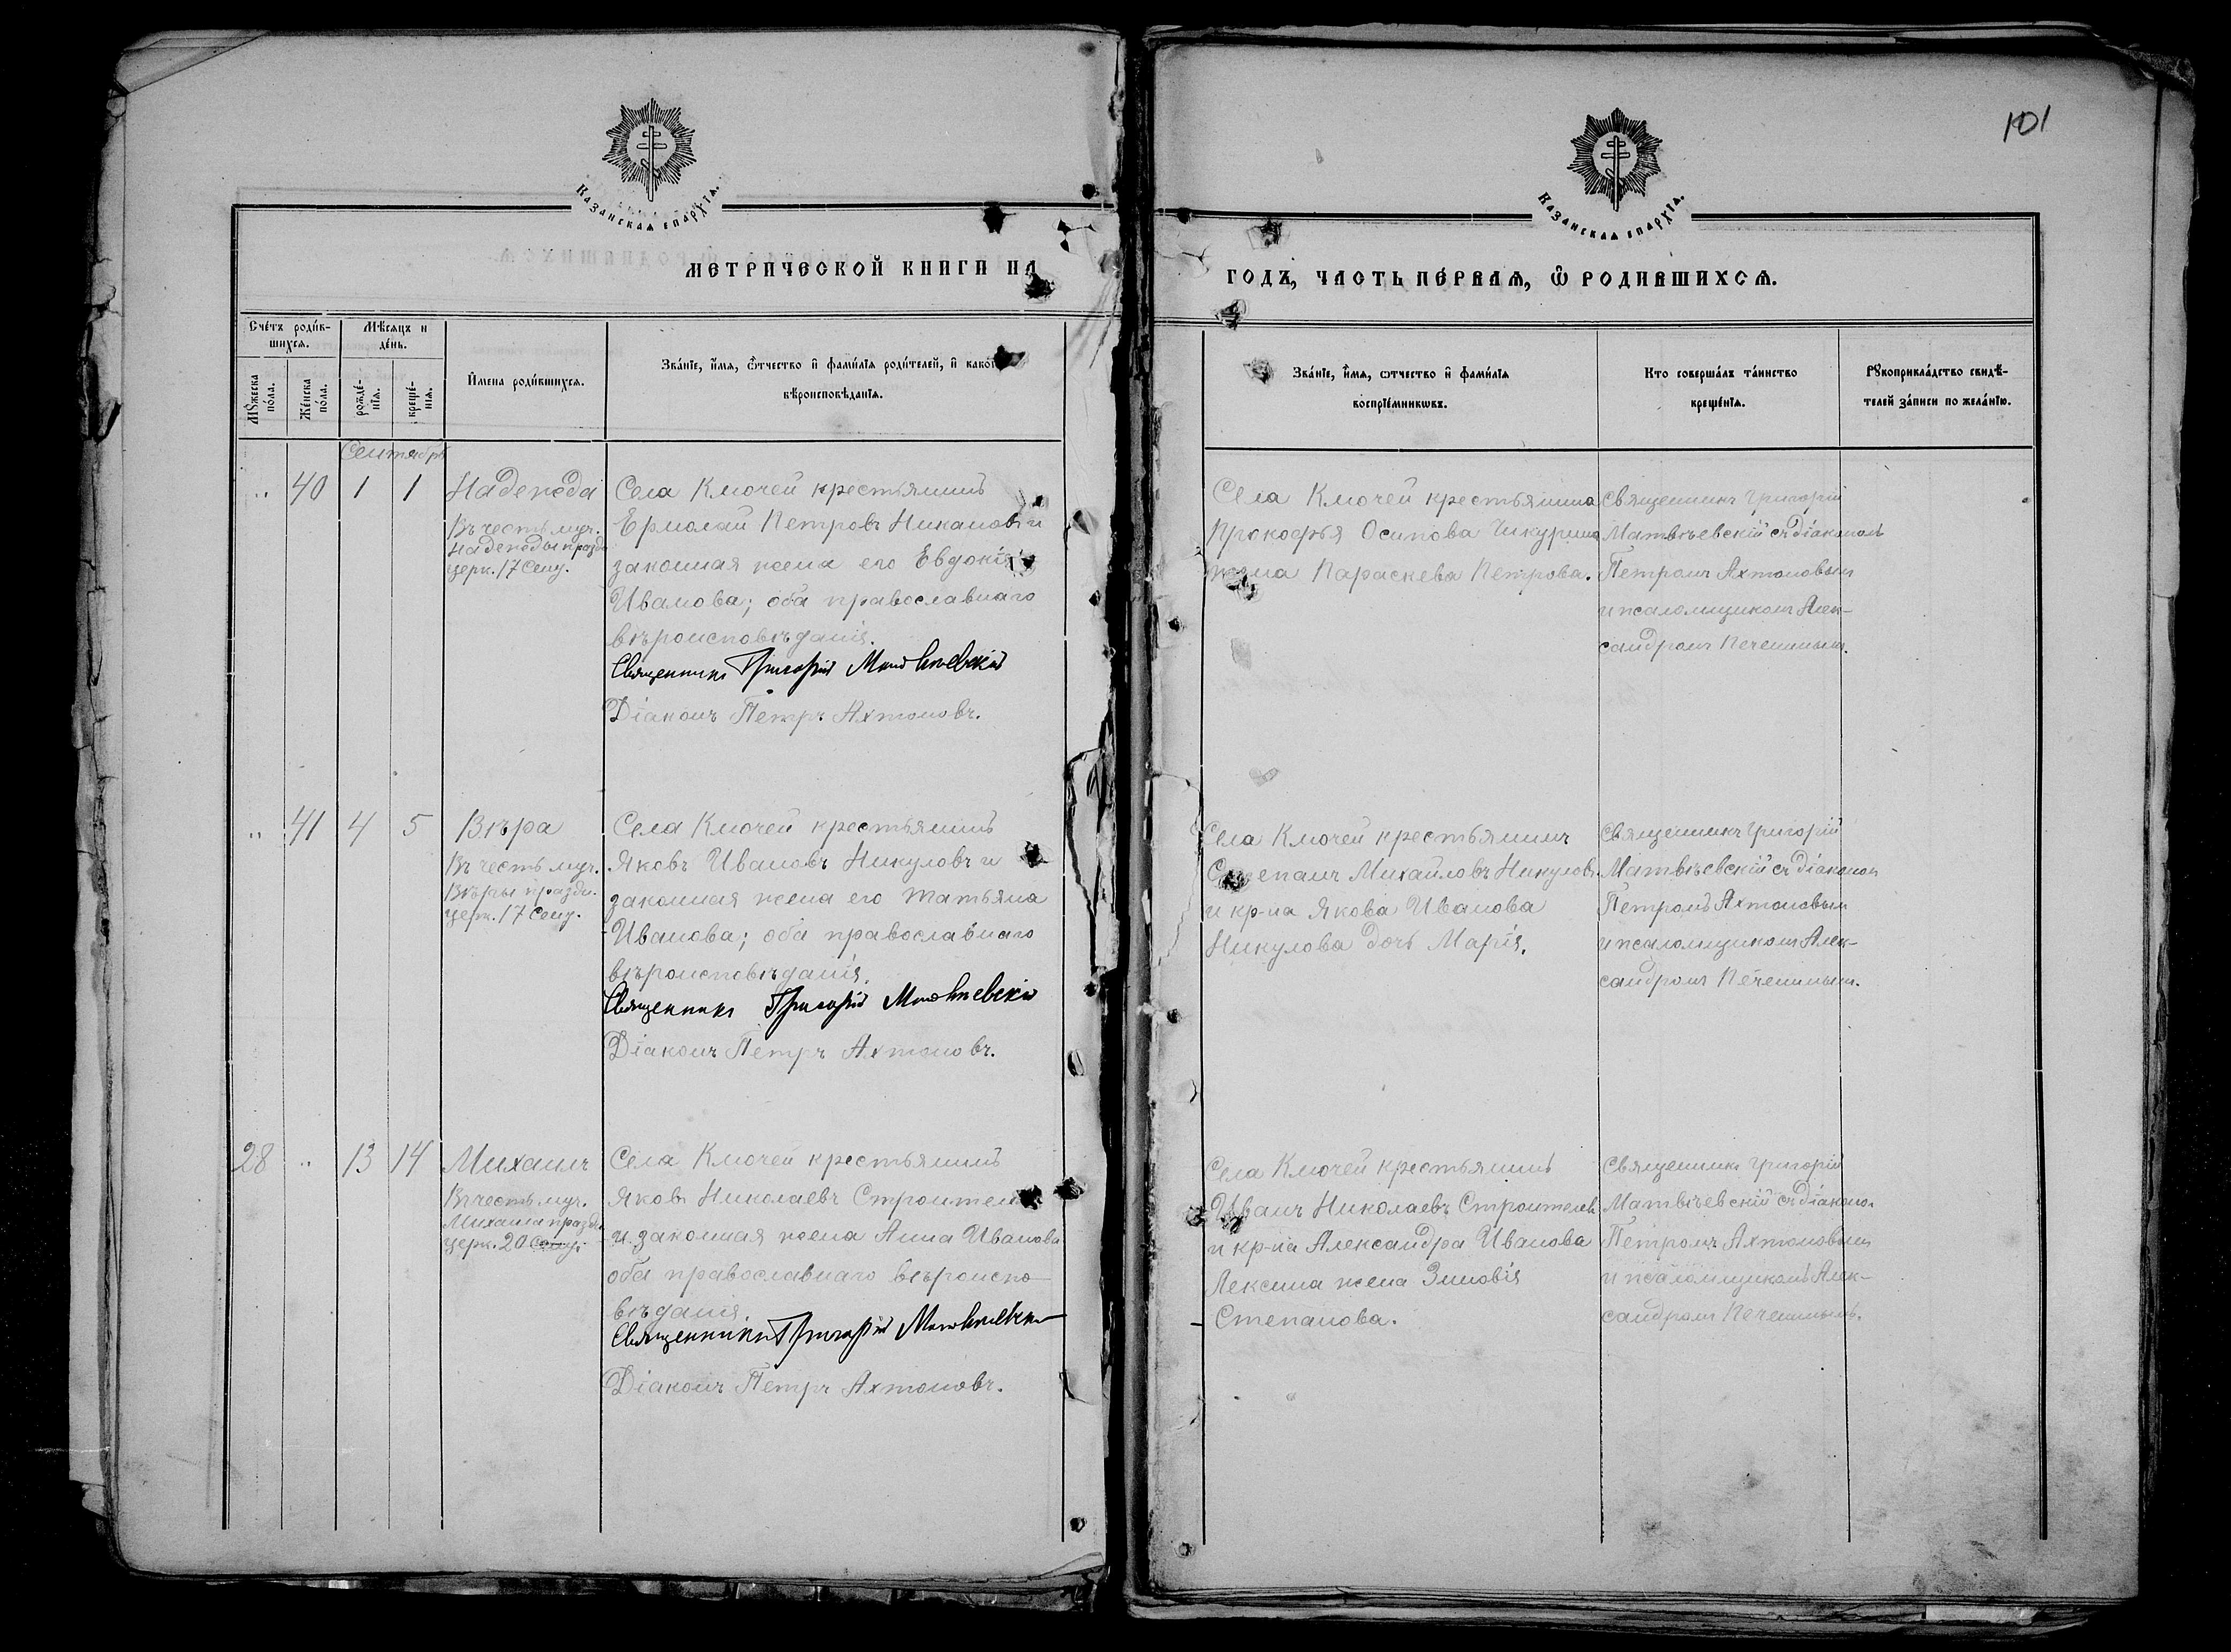 101
Казанская епархїя.
Казанская епархїя.
МЕТРИЧЕСКОЙ КНИГИ НА
ГОДЪ, ЧАСТЬ ПЕРВАЯ, Ѡ РОДИВШИХСѦ.
Счетъ родив-
шихся.
Мѣсяцъ и
день.
Мꙋжеска
пола.
Женска
пола.
рожде-
нїя.
креще-
нїя.
Имена родившихся.
Званїе, имя, ѿчество и фамилїя родителей, и какого
вѣроисповѣданїя.
Званїе, имя, ѡтчество и фамилїя
воспрїемникѡвъ.
Кто совершалъ таинство
крещенїя.
Рꙋкоприкладство свидѣ-
телей записи по желанїю.
Сентябрь
.. 40 1 1 Надежда
Въ честь муч.
Надежды празд.
церк. 17 Сент.
Села Ключей крестьянинъ
Ермолай Петровъ и
законная жена его Евдокія
Иванова; оба православнаго
вѣроисповѣданія.
Священникъ Григорій Матвѣевскій
Діаконъ Петръ Ахтоновъ.
Села Ключей крестьянина
Прокофья Осипова Чикурина
жена Параскева Петрова.
Священникъ Григорій
Матвѣевскій съ діакономъ
Петромъ Ахтоновым
и псаломщиком Алек-
сандромъ Печенинымъ.
.. 41 4 5 Вѣра
Въ честь муч.
Вѣры праздн.
церк. 17 Сент.
Села Ключей крестьянинъ
Яковъ Ивановъ Никуловъ и
законная жена его Татьяна
Иванова; оба православнаго
вѣроисповѣданія.
Священникъ Григорій Матвѣевскій
Діаконъ Петръ Ахтоновъ.
Села Ключей крестьянинъ
Степанъ Михайловъ Никуловъ
и кр-на Якова Иванова
Никулова дочь Марія.
Священникъ Григорій
Матвѣевскій съ діаконом
Петромъ Ахтоновым
и псаломщиком Алек-
сандромъ Печенинымъ.
28 .. 13 14 Михаилъ
Въ честь муч.
Михаила празд.
церк. 20 Сент.
Села Ключей крестьянинъ
Яковъ Николаевъ Строителевъ
и законная жена Анна Иванова
оба православнаго вѣроиспо-
вѣданія.
Священникъ Григорій Матвѣевскій
Діаконъ Петръ Ахтоновъ.
Села Ключей крестьянинъ
Иванъ Николаевъ Строителевъ
и кр-на Александра Иванова
Лексина жена Зиновія
Степанова.
Священникъ Григорій
Матвѣевскій съ діаконо.
Петромъ Ахтоновым
и псаломщикомъ Алек-
сандромъ Печенинымъ.